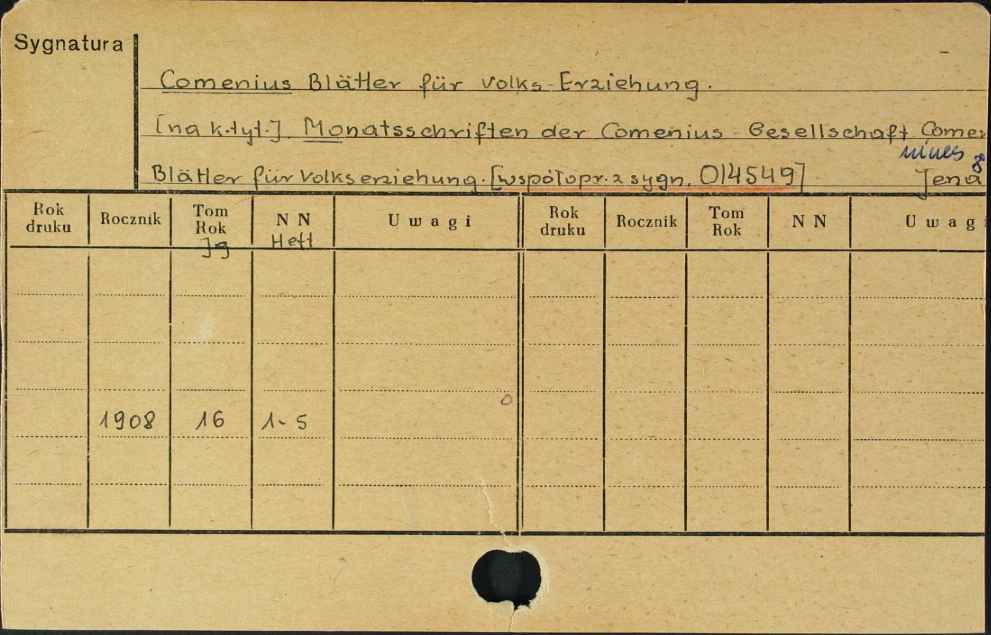 Sygnatura
Comenius Blätter für Volks-Erziehung.
[na k.tyt.] Monatsschriften der Comenius-Gesellschaft Comen
Blätter für Volkserziehung. [współopr. z sygn. 014549] Jena
Rok druku Rocznik Tom Rok Jg N N Heft Uwagi Rok druku Rocznik Tom Rok N N Uwagi
1908 16 1-5